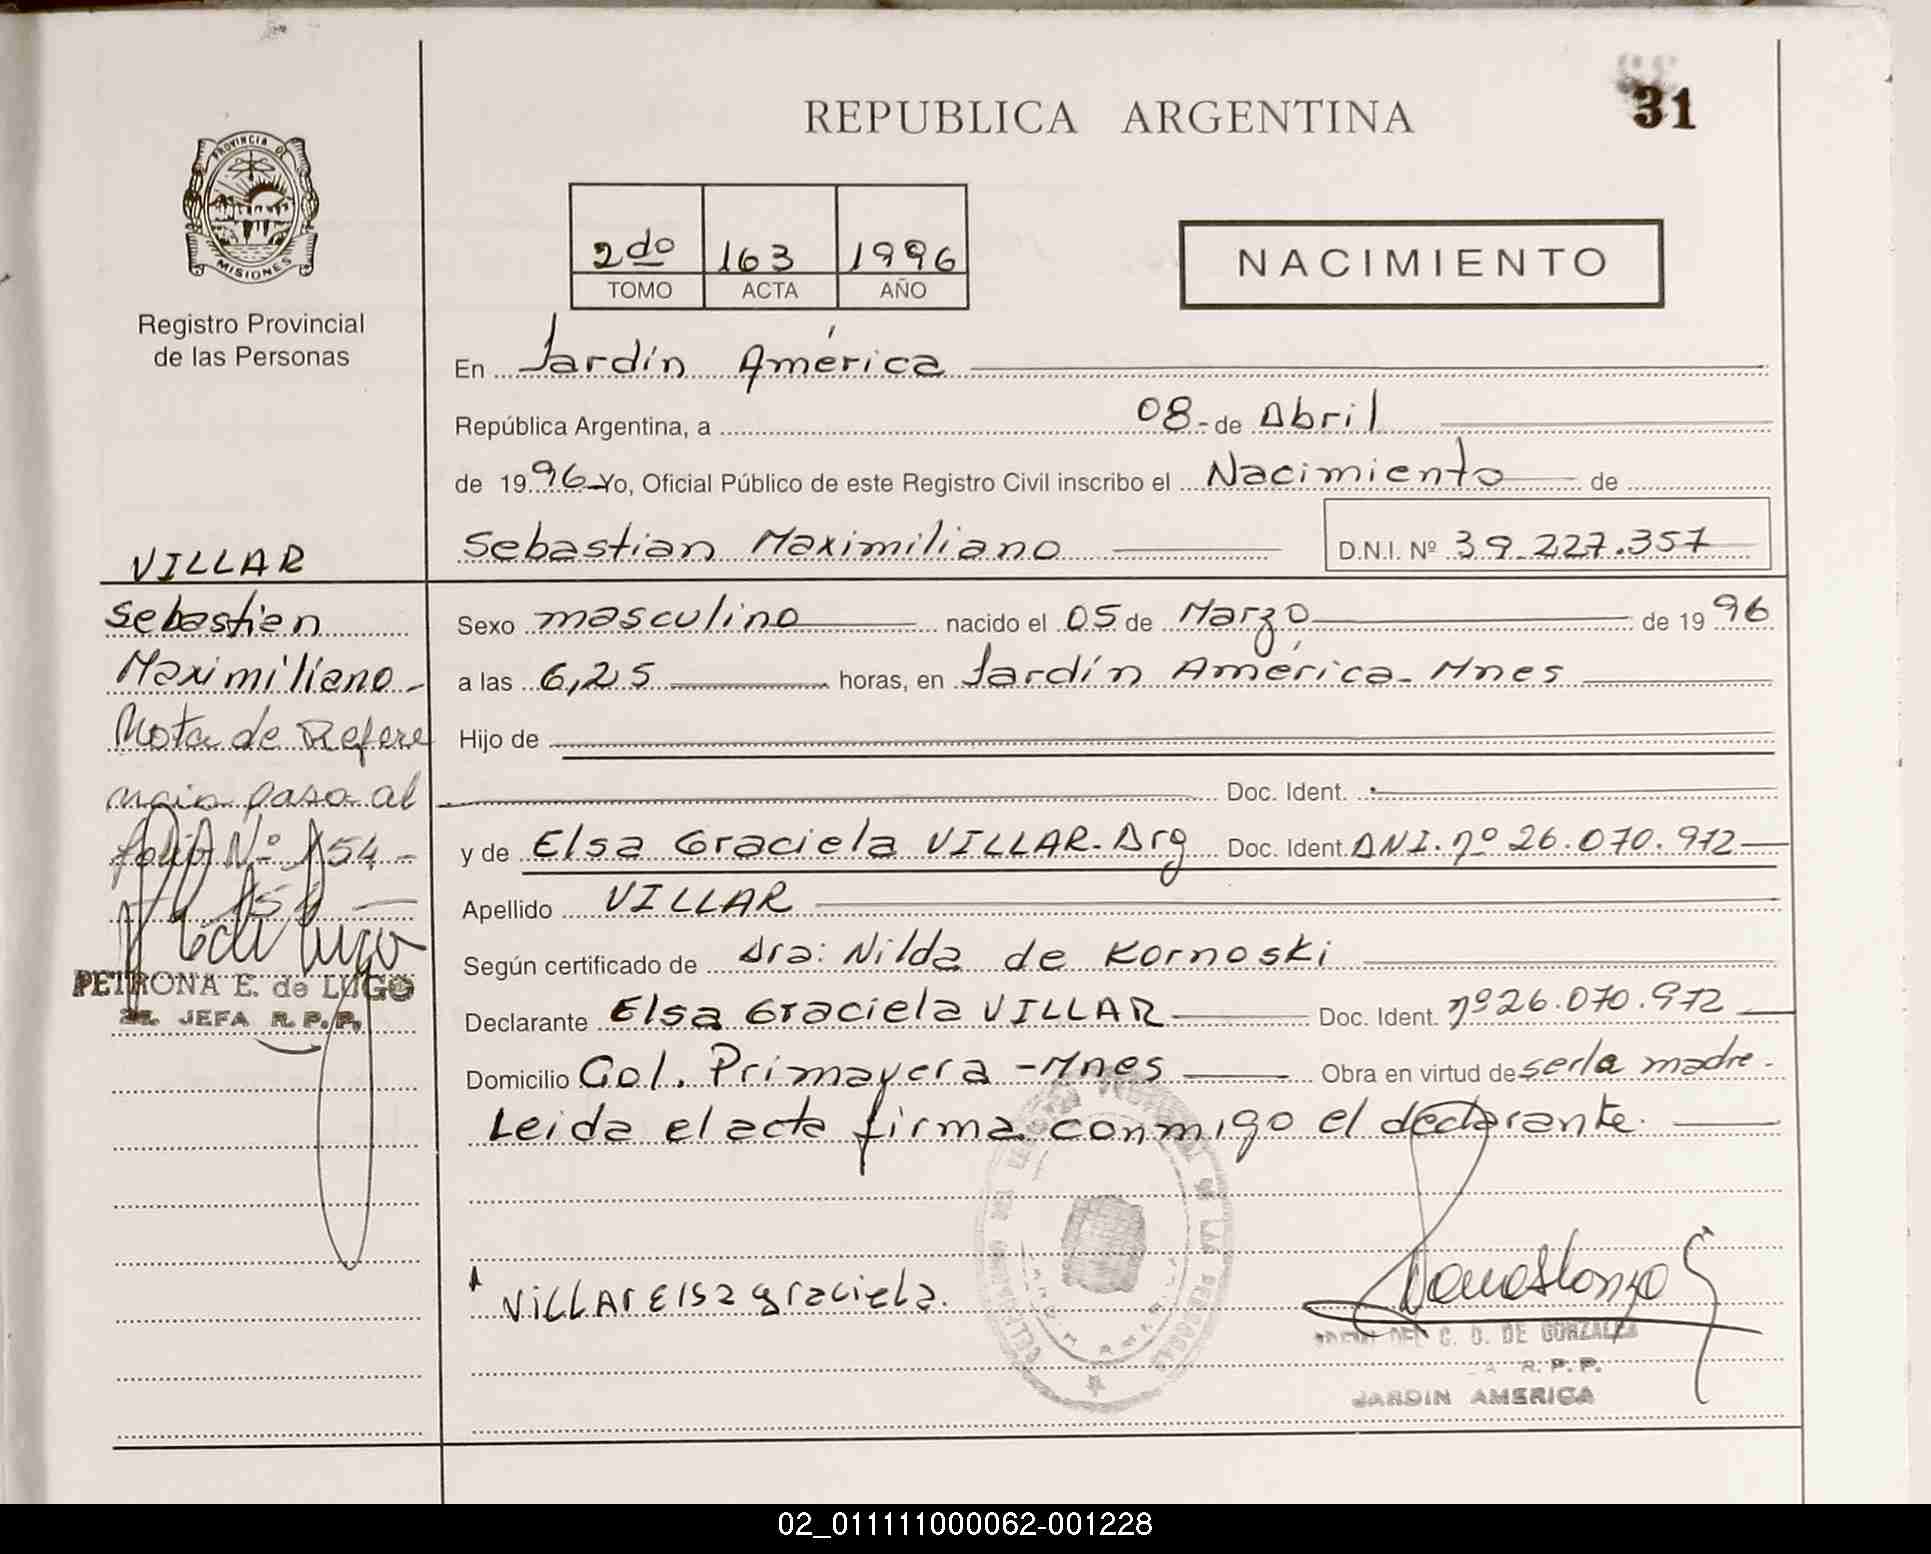 REPUBLICA ARGENTINA
31
PROVINCIA DE
MISIONES
Registro Provincial
de las Personas
2do 163 1996
TOMO ACTA AÑO
NACIMIENTO
En Jardín América
República Argentina, a 08 - de Abril
de 1996 Yo, Oficial Público de este Registro Civil inscribo el Nacimiento de
Sebastian Maximiliano D.N.I. Nº 39.227.357
VILLAR
Sebastian
Maximiliano -
Nota de Refere
ncia paso al
folio Nº 154 -
154 -
PETRONA E. de LUGO
JEFA R. P. P.
Sexo masculino nacido el 05 de Marzo de 1996
a las 6,25 horas, en Jardín América - Mnes
Hijo de
Doc. Ident.
y de Elsa Graciela VILLAR - Arg Doc. Ident. DNI. nº 26.070.972
Apellido VILLAR
Según certificado de Dra: Nilda de Kornoski
Declarante Elsa Graciela VILLAR Doc. Ident. nº 26.070.972
Domicilio Col. Primavera - Mnes Obra en virtud de ser la madre.
Leida el acta firma conmigo el declarante.
VILLAR Elsa graciela.
C. D. DE GONZALEZ
R. P. P.
JARDIN AMERICA
02_011111000062-001228